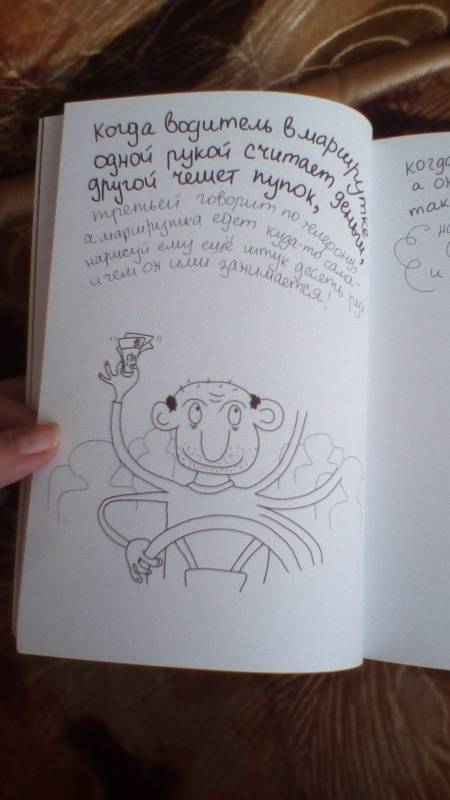 когда водитель в маршрутке
одной рукой считает деньги,
другой чешет пупок,
третьей говорит по телефону,
а маршрутка едет куда-то сама –
нарисуй ему ещё штук десять рук
и чем он ими занимается!
когда
а он
так
и